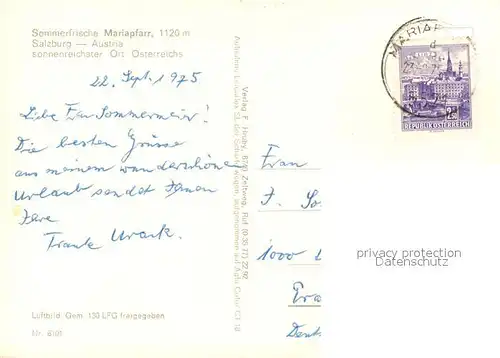 Sommerfrische Mariapfarr, 1120 m
Salzburg — Austria
sonnenreichster Ort Österreichs
22. Sept. 1975
Liebe Frau Sommermeier!
Die besten Grüsse
aus meinem wunderschönen
Urlaub sendet Ihnen
Ihre
Frank
Luftbild Gem. 130 LFG freigegeben
Nr. 6101
Verlag F. Hruby, 8740 Zeltweg, Ruf (0 35 77) 22 92
MARIAP
2S
REPUBLIK ÖSTERREICH
Frau
F. So
1000
Deuts
privacy protection
Datenschutz